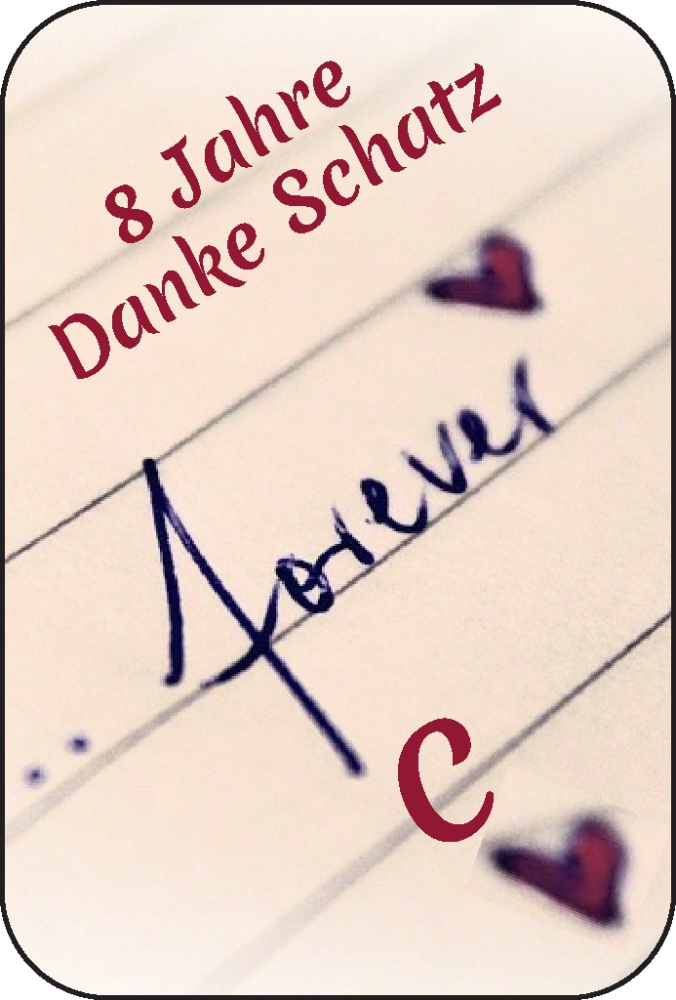 8 Jahre
Danke Schatz
forever
C